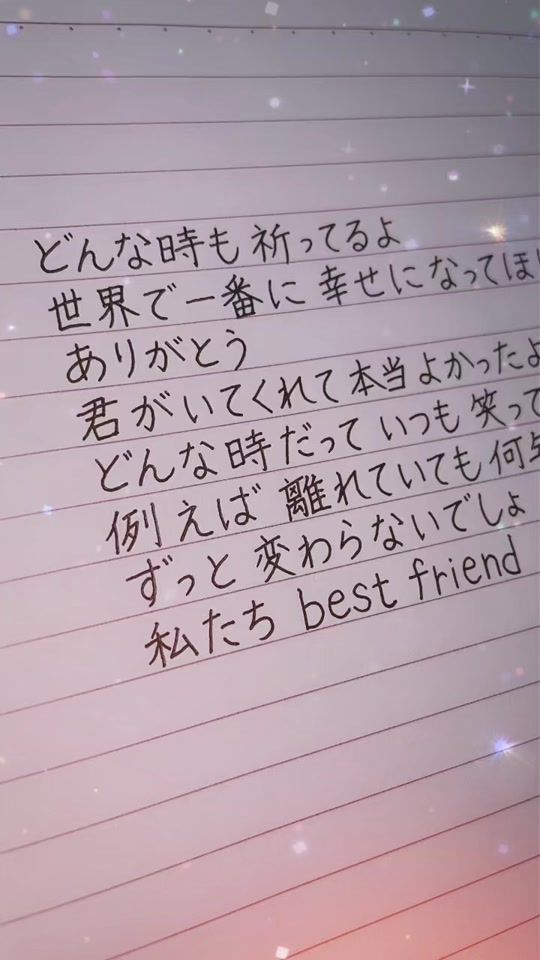 どんな時も 祈ってるよ
世界で一番に 幸せになってほ
ありがとう
君がいてくれて 本当よかったよ
どんな時だって いつも 笑って
例えば 離れていても 何
ずっと 変わらないでしょ
私たち best friend